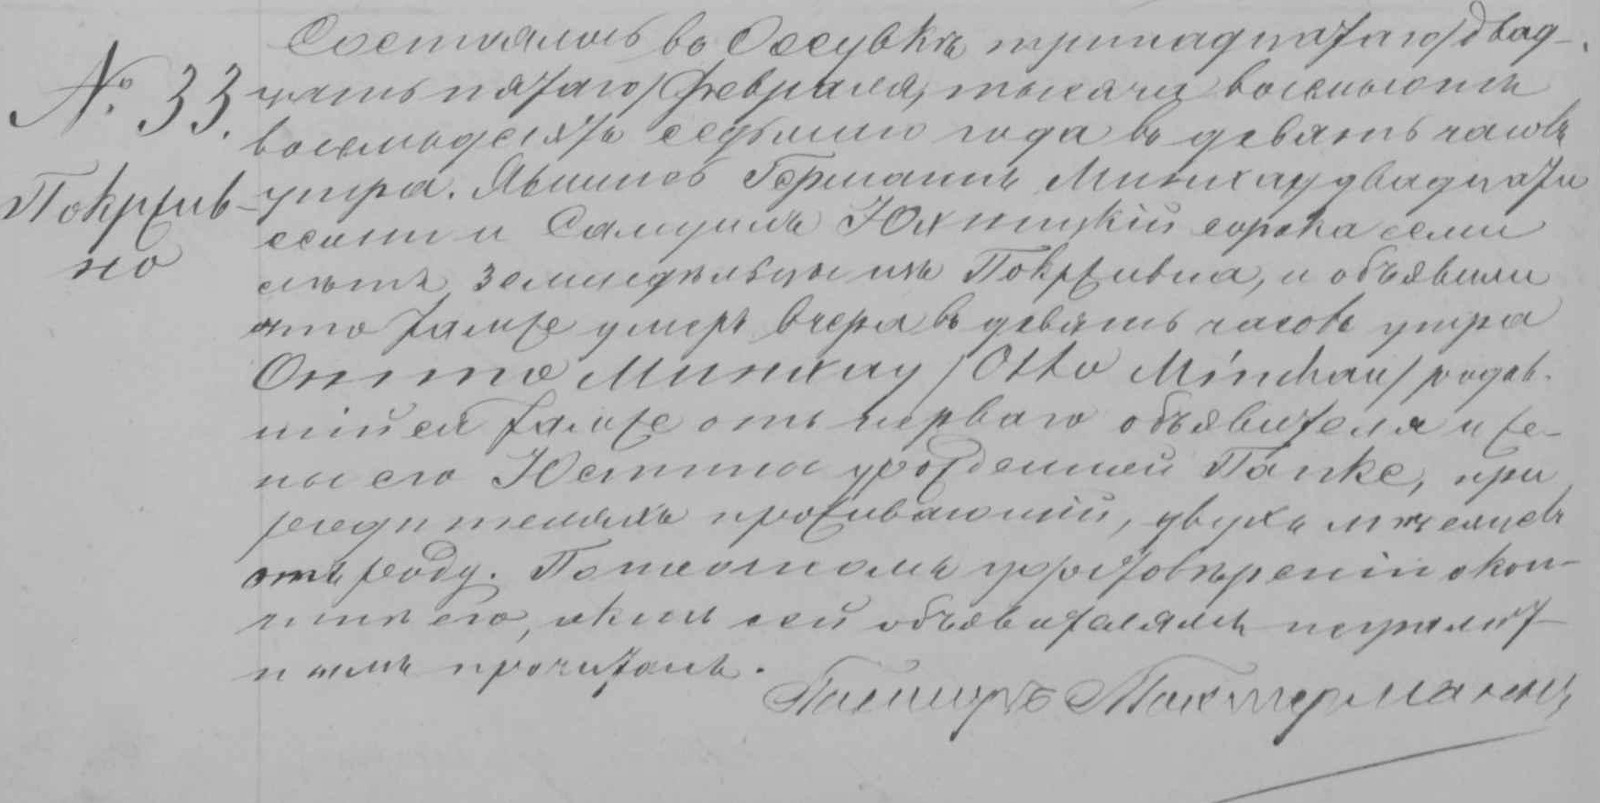 № 33.
Покрыв-
но
Состоялось въ Оссувкѣ тринадцатаго/двад-
цать пятаго/февраля, тысяча восемьсотъ
восемьдесятъ седьмого года въ девять часовъ
утра. Явились Германъ Минхау двадцати
семи и Самуилъ Юхницкій сорока семи
лѣтъ, земледѣльцы изъ Покрывна, и объявили
что тамже умеръ вчера въ девять часовъ утра
Отто Минхау /Otto Minchau/ родив-
шійся тамже отъ перваго объявителя и же-
ны его Юстины урожденной Папке, при
родителяхъ проживающій, двухъ мѣсяцевъ
отъ роду. По настоящемъ удостовѣреніи о кон-
чинѣ его, актъ сей объявителямъ неграмот-
нымъ прочитанъ.
Пасторъ